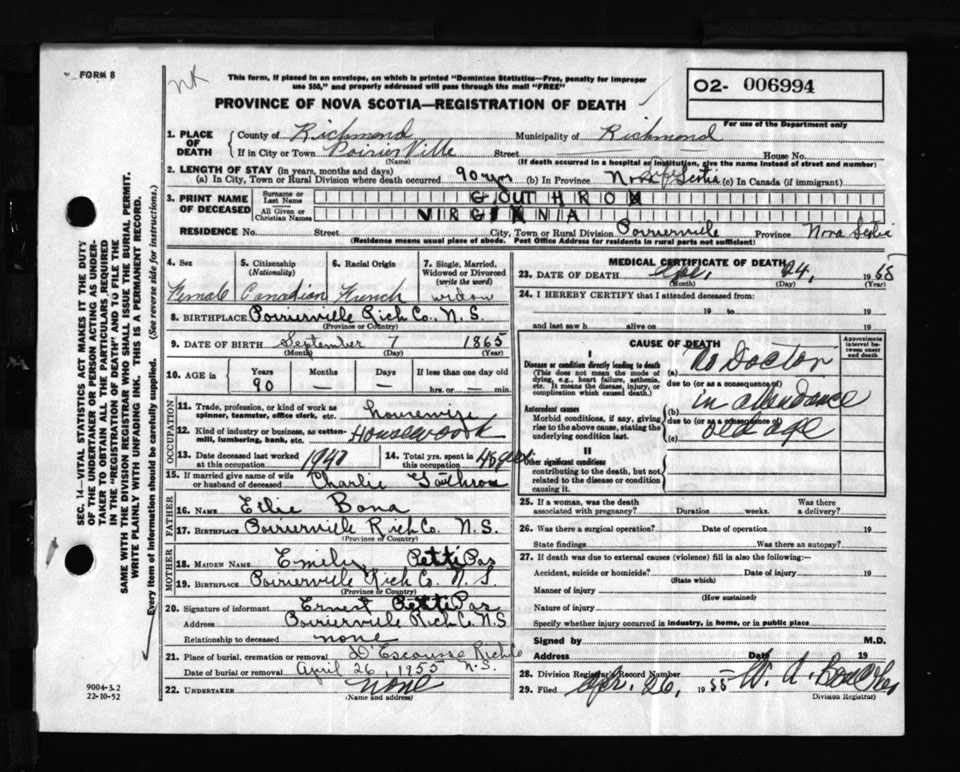 FORM B
NK
This form, if placed in an envelope, on which is printed "Dominion Statistics—Free, penalty for improper
use $50," and properly addressed will pass through the mail "FREE"
PROVINCE OF NOVA SCOTIA—REGISTRATION OF DEATH
O2- 006994
For use of the Department only
1. PLACE OF DEATH
County of Richmond Municipality of Richmond
If in City or Town PoirierVille Street House No.
(Name) (If death occurred in a hospital or institution, give the name instead of street and number)
2. LENGTH OF STAY (in years, months and days)
(a) In City, Town or Rural Division where death occurred 90 yrs (b) In Province Nova Scotia (c) In Canada (if immigrant)
3. PRINT NAME OF DECEASED
Surname or Last Name GOUTHRO
All Given or Christian Names VIRGINIA
RESIDENCE No. Street City, Town or Rural Division Poirierville Province Nova Scotia
(Residence means usual place of abode. Post Office Address for residents in rural parts not sufficient)
4. Sex
Female
5. Citizenship (Nationality)
Canadian
6. Racial Origin
French
7. Single, Married, Widowed or Divorced (write the word)
widow
8. BIRTHPLACE Poirierville Rich Co. N.S.
(Province or Country)
9. DATE OF BIRTH September 7 1865
(Month) (Day) (Year)
10. AGE in Years Months Days If less than one day old
90 — — hrs. or — min.
OCCUPATION
11. Trade, profession, or kind of work as spinner, teamster, office clerk, etc. housewife
12. Kind of industry or business, as cotton-mill, lumbering, bank, etc. Housework
13. Date deceased last worked at this occupation 1940
14. Total yrs. spent in this occupation 48
15. If married give name of wife or husband of deceased Charlie Gouthro
FATHER
16. NAME Elie Bona
17. BIRTHPLACE Poirierville Rich Co. N.S.
(Province or Country)
MOTHER
18. MAIDEN NAME Emily PettiPas
19. BIRTHPLACE Poirierville Rich Co. N.S.
(Province or Country)
20. Signature of informant Ernest PettiPas
Address Poirierville Rich Co. N.S
Relationship to deceased none
21. Place of burial, cremation or removal D'Escousse Rich Co
Date of burial or removal April 26, 1955 N.S.
22. UNDERTAKER none
(Name and address)
MEDICAL CERTIFICATE OF DEATH
23. DATE OF DEATH Apr. 24, 1955
(Month) (Day) (Year)
24. I HEREBY CERTIFY that I attended deceased from:
19 to 19
and last saw h alive on 19
CAUSE OF DEATH
Approximate interval between onset and death
I
Disease or condition directly leading to death
(This does not mean the mode of dying, e.g., heart failure, asthenia, etc. It means the disease, injury, or complication which caused death.)
(a) No Doctor
due to (or as a consequence of)
Antecedent causes
Morbid conditions, if any, giving rise to the above cause, stating the underlying condition last.
(b) in attendance
due to (or as a consequence of)
(c) old age
II
Other significant conditions
contributing to the death, but not related to the disease or condition causing it.
25. If a woman, was the death associated with pregnancy? Duration weeks. Was there a delivery?
26. Was there a surgical operation? Date of operation 19
State findings Was there an autopsy?
27. If death was due to external causes (violence) fill in also the following:—
Accident, suicide or homicide? Date of injury 19
(State which)
Manner of injury
(How sustained)
Nature of injury
Specify whether injury occurred in industry, in home, or in public place
Signed by M.D.
Address Date 19
28. Division Registrar's Record Number
29. Filed Apr. 26, 1955 W. A.
Division Registrar
SEC. 14—VITAL STATISTICS ACT MAKES IT THE DUTY
OF THE UNDERTAKER OR PERSON ACTING AS UNDER-
TAKER TO OBTAIN ALL THE PARTICULARS REQUIRED
IN THE "REGISTRATION OF DEATH" AND TO FILE THE
SAME WITH THE DIVISION REGISTRAR WHO SHALL ISSUE THE BURIAL PERMIT.
WRITE PLAINLY WITH UNFADING INK. THIS IS A PERMANENT RECORD.
Every item of information should be carefully supplied. (See reverse side for instructions.)
9004-3.2
22-10-52